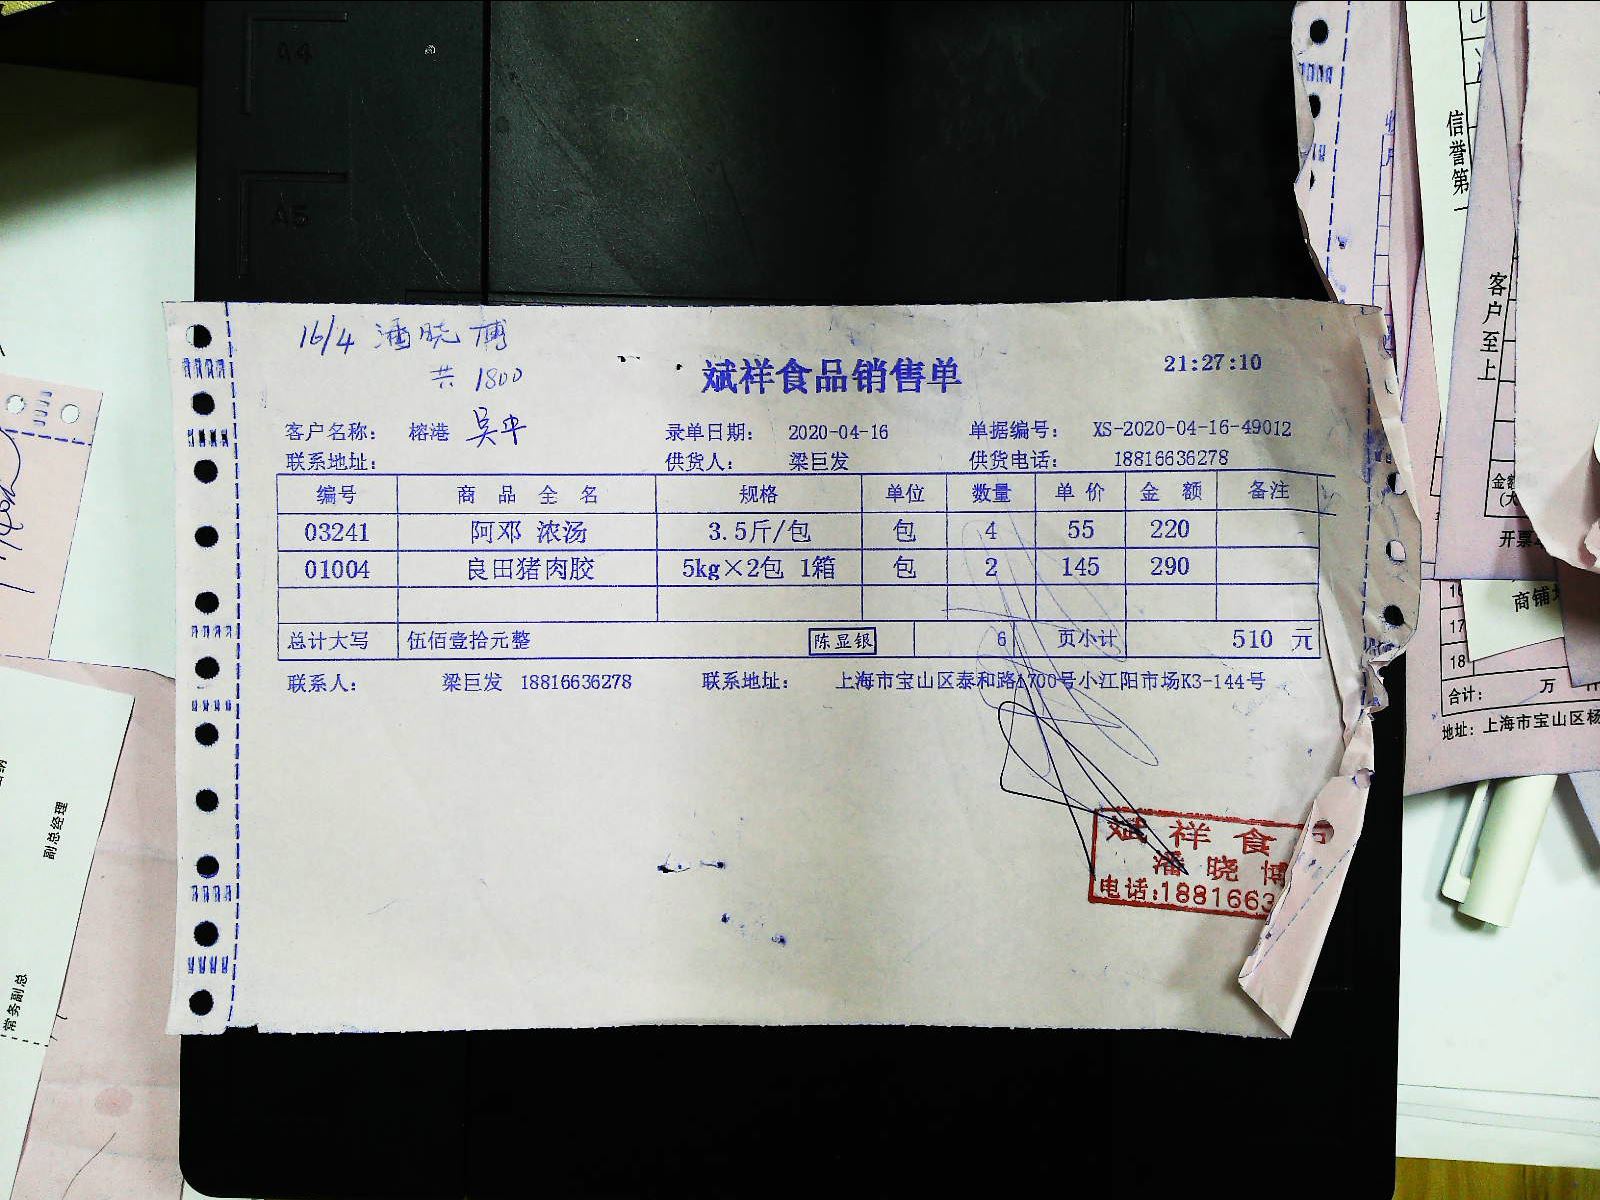 A4
A5
16/4 潘晓博
共 1800
斌祥食品销售单
21:27:10
客户名称： 榕港 吴中 录单日期： 2020-04-16 单据编号： XS-2020-04-16-49012
联系地址： 供货人： 梁巨发 供货电话： 18816636278
编号 商 品 全 名 规格 单位 数量 单 价 金 额 备注
03241 阿邓 浓汤 3.5斤/包 包 4 55 220
01004 良田猪肉胶 5kg×2包 1箱 包 2 145 290
总计大写 伍佰壹拾元整 陈显银 6 页小计 510 元
联系人： 梁巨发 18816636278 联系地址： 上海市宝山区泰和路1700号小江阳市场K3-144号
斌 祥 食
潘 晓 博
电话:1881663
信誉第一
客户至上
开票
商铺
16
17
18
合计： 万
地址：上海市宝山区杨
副总经理
常务副总